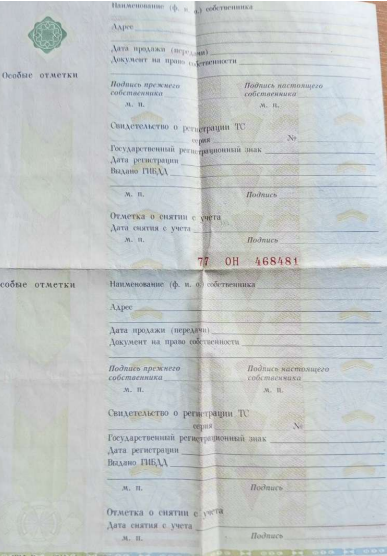 Наименование (ф. и. о.) собственника
Адрес
Дата продажи (передачи)
Документ на право собственности
Особые отметки
Подпись прежнего собственника
Подпись настоящего собственника
м. п.
м. п.
Свидетельство о регистрации ТС
серия №
Государственный регистрационный знак
Дата регистрации
Выдано ГИБДД
м. п. Подпись
Отметка о снятии с учета
Дата снятия с учета
м. п. Подпись
77 ОН 468481
собые отметки
Наименование (ф. и. о.) собственника
Адрес
Дата продажи (передачи)
Документ на право собственности
Подпись прежнего собственника
Подпись настоящего собственника
м. п.
м. п.
Свидетельство о регистрации ТС
серия №
Государственный регистрационный знак
Дата регистрации
Выдано ГИБДД
м. п. Подпись
Отметка о снятии с учета
Дата снятия с учета
м. п. Подпись